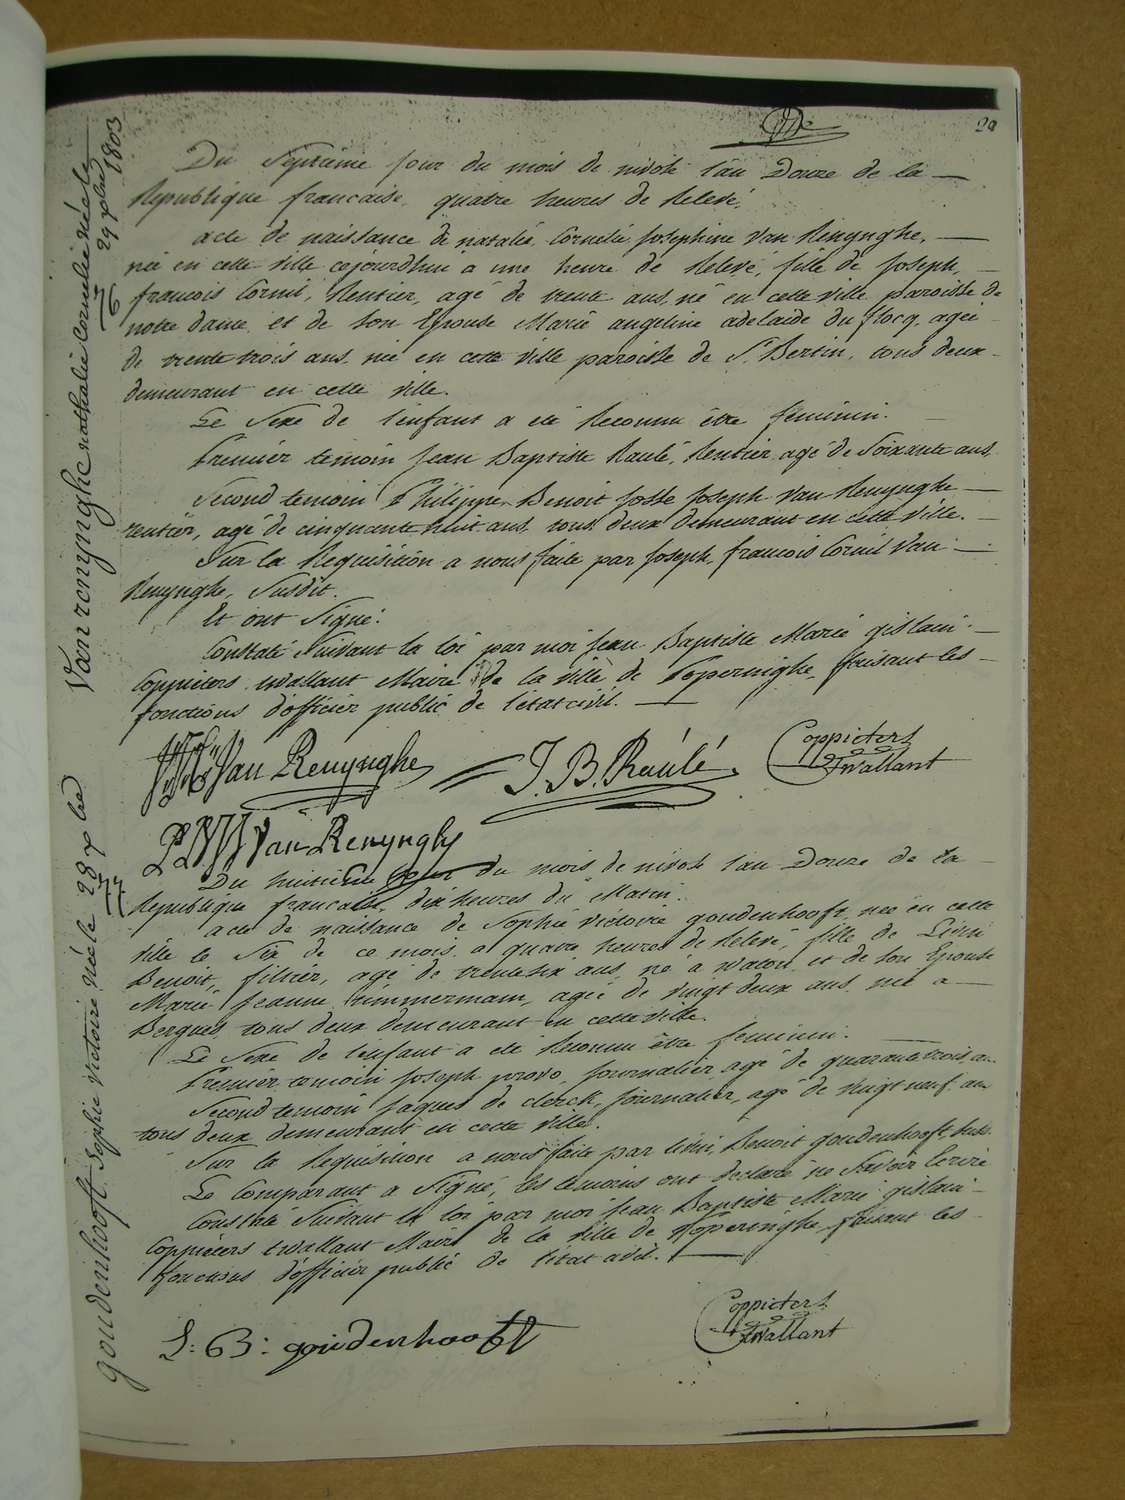 29
Du Septieme jour du mois de nivose l'an Douze de la
Republique francaise, quatre heures de Relevé,
acte de naissance de natalie Cornelie Josephine Van Renynghe,
née en cette ville cejourdhui a une heure de Relevé, fille de Joseph,
francois Cornil, Rentier, agé de trente ans, né en cette ville paroisse de
notre dame, et de son Epouse Marie angeline adelaide du flocq, ageé
de trente trois ans, née en cette ville paroisse de St Bertin, tous deux
demeurant en cette ville.
Le Sexe de l'enfant a eté Reconnu être féminin.
Premier temoin Jean Baptiste Raulé, Rentier, agé de Soixante ans,
Second temoin Philippe Benoit Josse Joseph Van Renynghe
rentier, agé de cinquante huit ans, tous deux demeurant en cette Ville.
Sur la Requisition a nous faite par Joseph, francois Cornil Van
Renynghe, Susdit.
Et ont Signé.
Constaté Suivant la loi par moi Jean Baptiste Marie gislain
Coppieters wallant Maire de la ville de Poperinghe, faisant les
fonctions d'officier public de l'état civil.
Van Renynghe
J. B. Raulé
Coppieters
twallant
Van Renynghe
Du huitieme jour du mois de nivose l'an Douze de la
Republique francaise, dix heures du Matin.
acte de naissance de Sophie victoire goudenhooft, née en cette
ville le Six de ce mois, a quatre heures de Relevé, fille de Liévin
Benoit, filtier, agé de trente six ans, né a watou et de Son Epouse
Marie Jeanne timmerman, agée de vingt deux ans, née a
Bergues, tous deux demeurant en cette ville.
Le Sexe de l'enfant a eté Reconnu être feminin.
Premier temoin Joseph provo, journalier, agé de quarante trois an
Second temoin Jaques de clerck, journalier, agé de vingt neuf an
tous deux demeurant en cette ville.
Sur la Requisition a nous faite par liévin Benoit goudenhooft, sus.
Le Comparant a Signé, les temoins ont declaré ne Savoir Ecrire
Constaté Suivant la loi par moi Jean Baptiste Marie gislain
Coppieters twallant Maire de la ville de Poperinghe, faisant les
fonctions d'officier public de l'état civil.
L: B: goudenhooft
Coppieters
twallant
Van renynghe nathalie Cornelie née le
29 xbre 1803
7/6
goudenhooft Sophie victoire née le 28 xbre